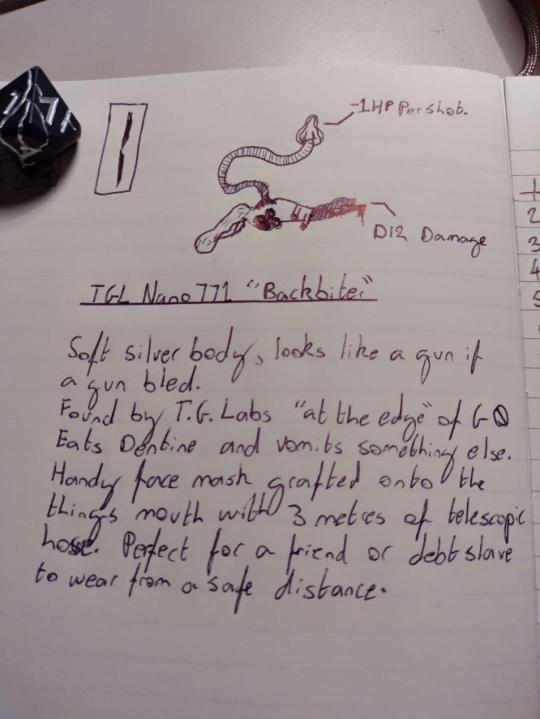 1
-1HP Per shot.
D12 Damage
TGL Nano 771 "Backbiter"
Soft silver body, looks like a gun if
a gun bled.
Found by T.G. Labs "at the edge" of G0
Eats Dentine and vomits something else.
Handy face mask grafted onto the
things mouth with 3 metres of telescopic
hose. Perfect for a friend or debt slave
to wear from a safe distance.
1
2
3
4
5